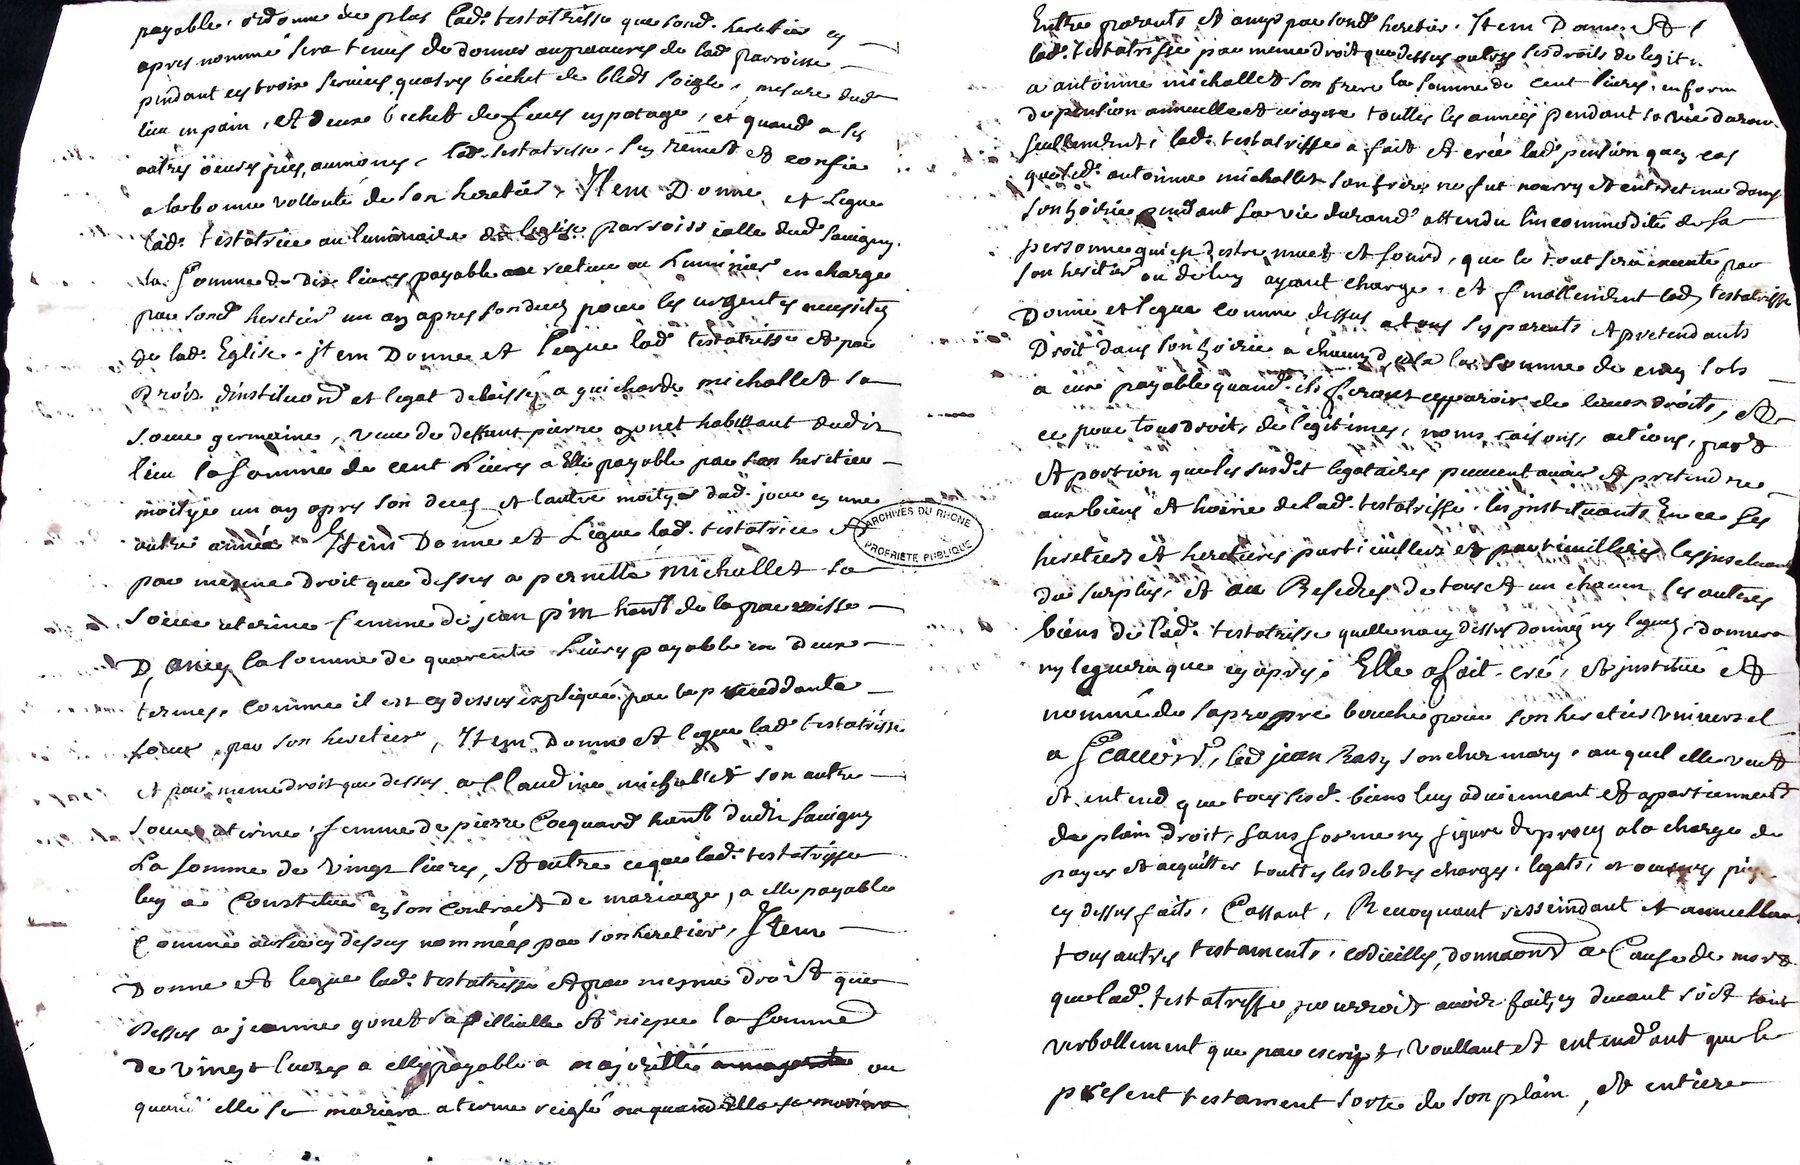 payable, ordonne de plus lad. testatrisse que sond. heretier cy
apres nommé sera tenus de donner aux pauvres de lad. parroisse
pendant ces trois services quatres bichet de bleds soigle, mesure dud.
lieu en pain, et deux bichet de feves en potage, et quand a ses
autres oeuvres pies, aumones, lad. testatrisse s'en remet et confie
a la bonne vollonté de son heretier, Item Donne et Legue
lad. testatrice au luminaire de leglise parroissialle dud. Savigny
La Somme de dix livres payable au recteur ou Luminier en charge
par sond. heretier un an apres son decez pour les urgentes necessitez
de lad. Eglise. item Donne et legue lad. testatrisse et par
Droit d'institu͠on et legat delaissé a guicharde michallet sa
soeur germaine, veuve de deffunt pierre gonet habittant dudit
lieu la somme de cent Livres a Elle payable par son heretier
moityé un an apres son decez et l'autre moityé dad. jour en une
autre année. Item Donne et Legue lad. testatrice et
par mesme droit que dessus a pernette michallet sa
soeur uterine femme de jean pin hant. de la parroisse
D'ancy la somme de quarente Livres payable en deux
termes, comme il est cy dessus expliqué par la preceddante
soeur, par son heretier, Item Donne et legue lad. testatrisse
et par meme droit que dessus a Claudine michallet son autre
soeur uterine femme de pierre Cocquard hant. dudit Savigny
La somme de vingt livres, et outre ce que lad. testatrisse
luy a Constitué en son Contract de mariage, a elle payable
Comme aux cy dessus nommées par son heretier, Item
Donne et legue lad. testatrisse et par mesme droit que
Dessus a jeanne gonet sa fillialle et niepce la somme
de vingt livres a elle payable a majoritté ou
quand elle se mariera a terme reiglé ou quand elle se mariera
Entre parents et amys par sond. heretier. Item Donne et
lad. testatrisse par meme droit que dessus outres ses droits de legit
a antoinne michallet son frere la somme de cent livres, en form
de pension annuelle et viagere touttes les années pendant sa vie duran
seullement, lad. testatrisse a fait et créé lad. pention qu'en cas
que led. antoinne michallet son frere ne fut nourry et entretenue dans
son hoirie pendant sa vie durand attendu l'incommodité de sa
personne qui est d'estre muet et sourd, que le tout sera executé par
son heritier ou de luy ayant charge, et finallement lad. testatrisse
Donne et legue comme dessus a tous ses parents et pretendants
Droit dans son hoirie a chacun d'eux la somme de cinq sols
a eux payable quand ils feront apparoir de leurs droits, et
ce pour tous droits de legitimes, noms, raisons, actions, part
et portion que les susdit legataires peuvent avoir et pretendre
aux biens et hoirie de lad. testatrisse. les instituants En ce ses
heretiers et heretieres particulliers et particullieres les excluant
du surplus, et au Residus de tous et un chacun ses autres
biens de lad. testatrisse quelle n'a cy dessus donnéz ny leguez, donnera
ny leguera que cy apres, Elle a fait, créé, et institué et
nommé de sa propre bouche pour son heretier universel
a scavoir, led. jean Razy son cher mary, auquel elle veut
et entend que tous sesd. biens luy adviennent et apartiennent
de plain droit, sans forme ny figure de procez a la charge de
payer et acquitter touttes les debtes charges, legats, et oeuvres pies
cy dessus faits, Cassant, Revoquant ressindant et annullant
tous autres testaments, codicilles, donna͠ons a Cause de mort
que lad. testatrisse pourroit avoir fait cy devant soit tant
verballement que par escript, voullant et entendant que le
présent testament sorte de son plain, et entiere
ARCHIVES DU RHONE
PROPRIETE PUBLIQUE